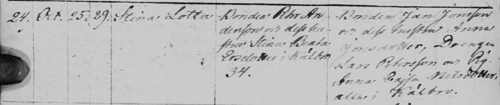 24. Oct. 25. 29. Stina Lotta
Bonden Pehr An-
dersson och dess hu-
stru Stina Beata
Ersdotter i Källbo.
34.
Bonden Jan Jonsson
och dess hustru Anna
Jonsdotter, Drengen
Lars Pehrsson och Pig.
Anna Cajsa Nilsdotter,
alla i Källbo.